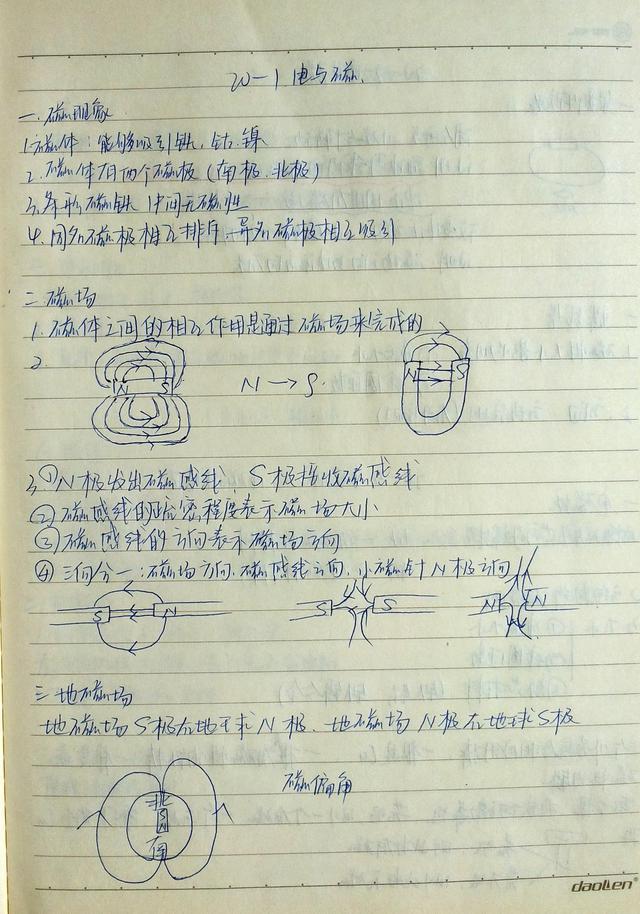 20-1 电与磁.
一. 磁现象
1.磁体:能够吸引铁、钴、镍
2.磁体有两个磁极(南极、北极)
3.条形磁铁 中间无磁性
4.同名磁极相互排斥,异名磁极相互吸引
二.磁场
1.磁体之间的相互作用是通过磁场来完成的
2.
N S
N→S.
N S
3.①N极发出磁感线,S极接收磁感线
②磁感线的疏密程度表示磁场大小
③磁感线的方向表示磁场方向
④三向合一:磁场方向、磁感线方向、小磁针N极方向
S N
S S
N N
三.地磁场
地磁场S极在地球N极、地磁场N极在地球S极
磁偏角
北
S
N
南
daolen